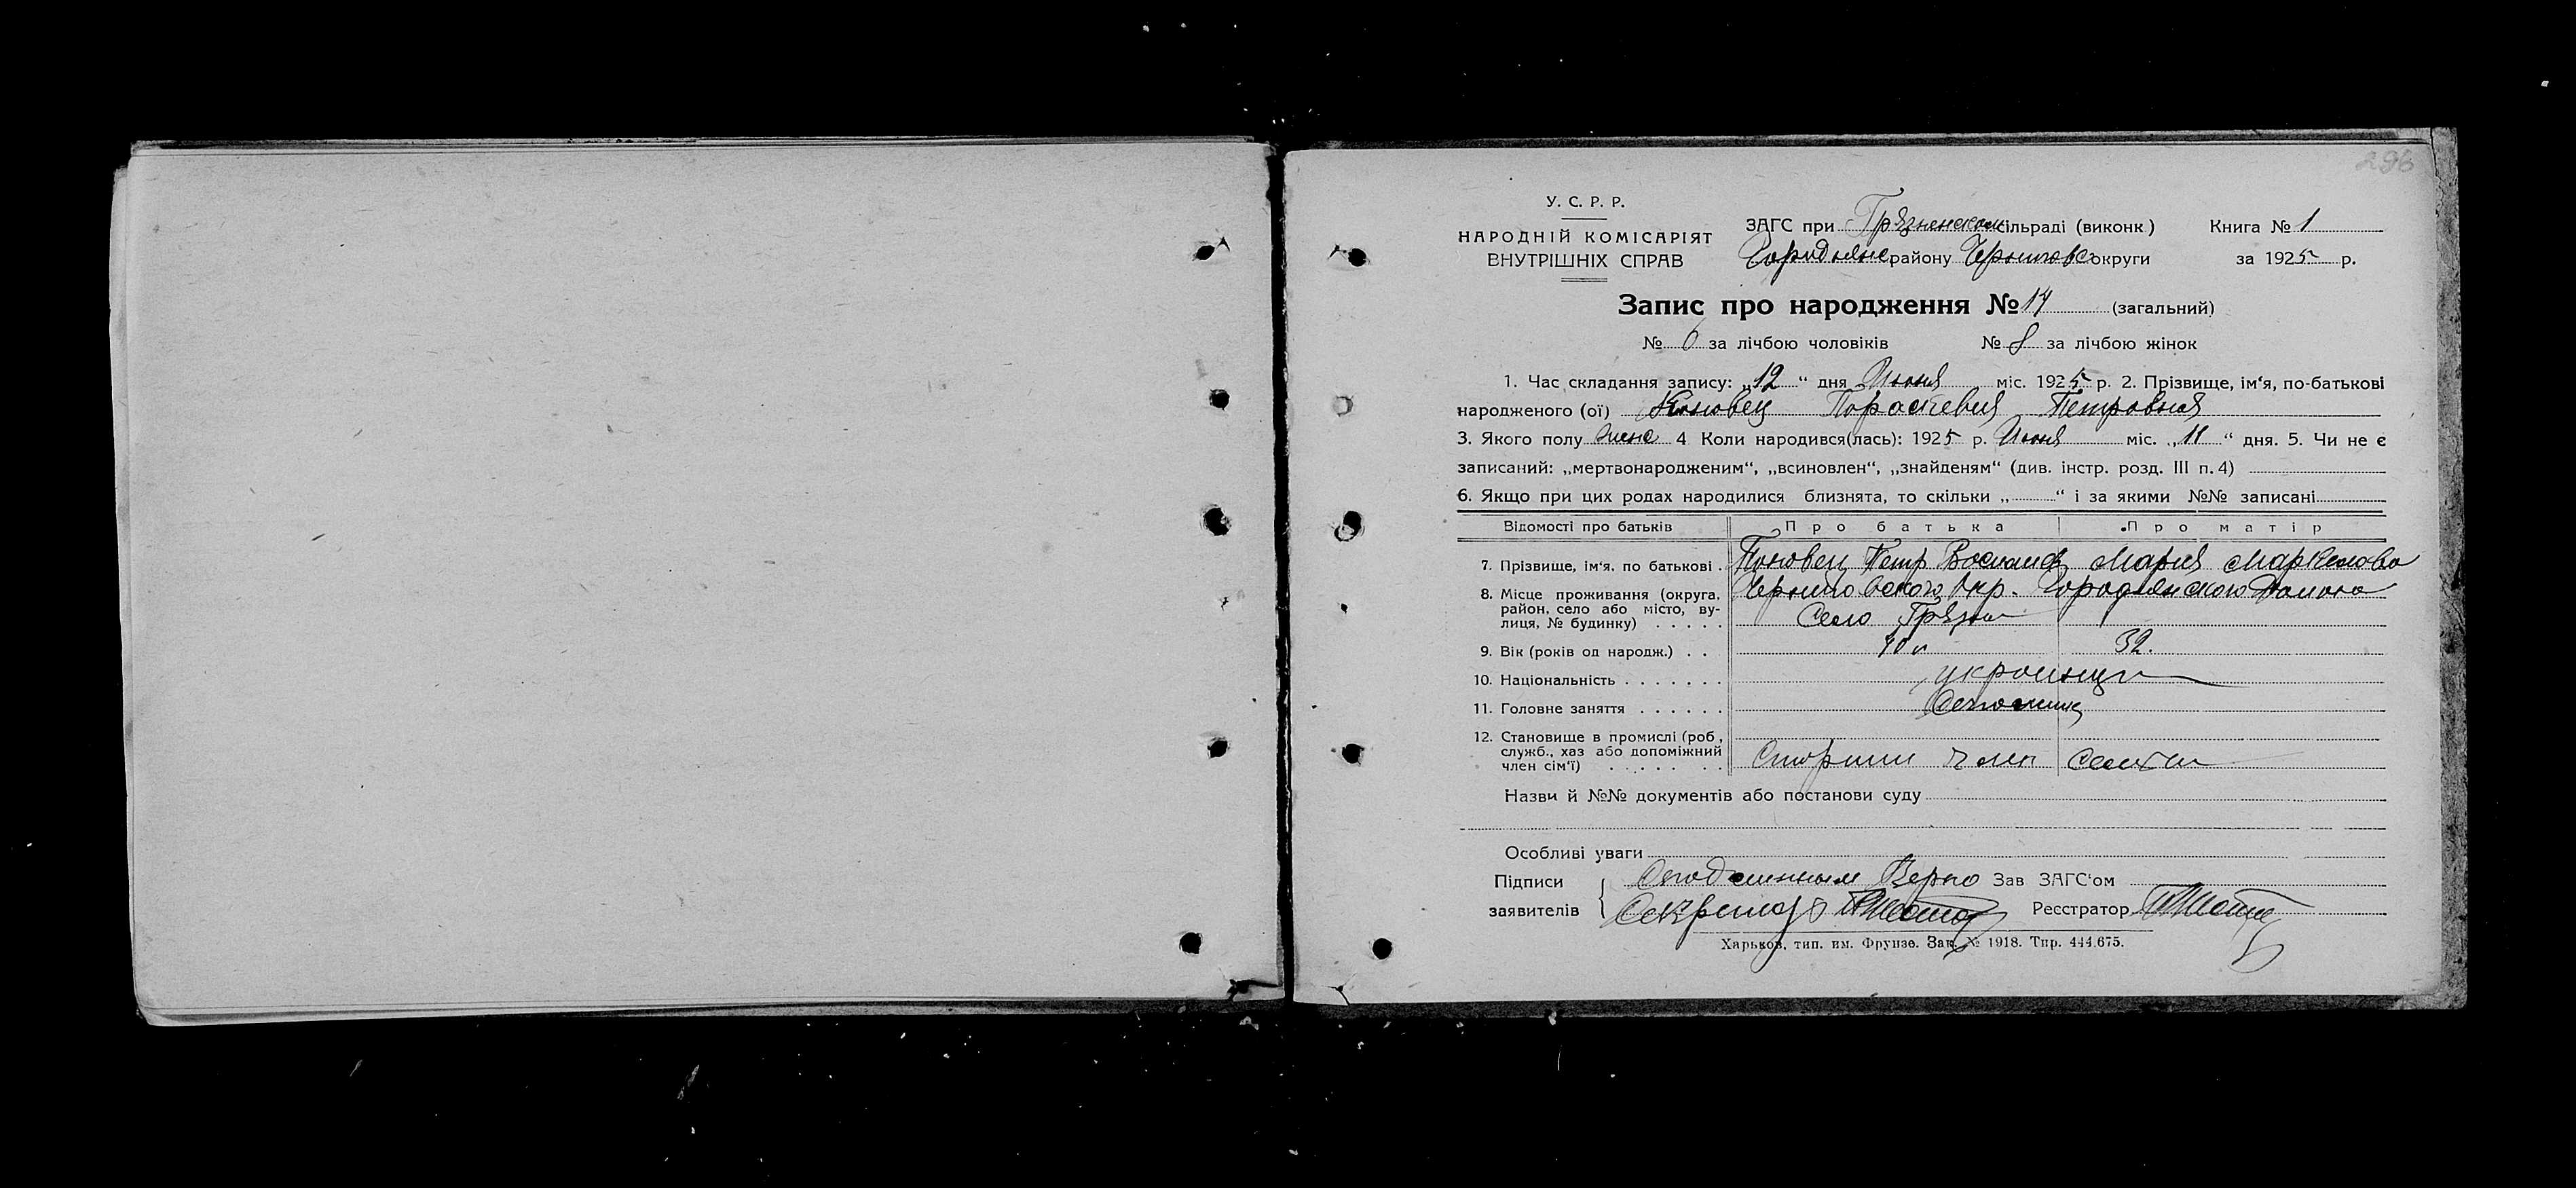 296
У. С. Р. Р.
НАРОДНІЙ КОМІСАРІЯТ
ВНУТРІШНІХ СПРАВ
ЗАГС при Грязненском сільраді (виконк) Книга № 1
Городнянс. району Чернигов. округи за 1925 р.
Запис про народження № 14 (загальний)
№ 6 за лічбою чоловіків № 8 за лічбою жінок
1. Час складання запису: „12“ дня Июня міс. 1925 р. 2. Прізвище, ім‘я, по-батькові
народженого (ої) Параскевия Петровна
3. Якого полу жене 4 Коли народився(лась): 1925 р. Июня міс. „11“ дня. 5. Чи не є
записаний: „мертвонародженим“, „всиновлен“, „знайденям“ (див. інстр. розд. III п. 4)
6. Якщо при цих родах народилися близнята, то скільки „ “ і за якими №№ записані
Відомості про батьків Про батька Про матір
7. Прізвище, ім‘я, по батькові . Петр Мария
8. Місце проживання (округа, Черниговского Окр. Городнянского Района
район, село або місто, ву- Село Грязни
лиця, № будинку) . . . . .
9. Вік (років од народж.) . . 40 л 32.
10. Національність . . . . . . . украинци
11. Головне заняття . . . . . .
12. Становище в промислі (роб.,
служб., хаз або допоміжний
член сім‘ї) . . . . . . . член семьи
Назви й №№ документів або постанови суду
Особливі уваги
Підписи С подлинным Верно Зав ЗАГС‘ом
заявителів Секретарь Реєстратор
Харьков, тип. им. Фрунзе. Зак. № 1918. Тир. 444.675.